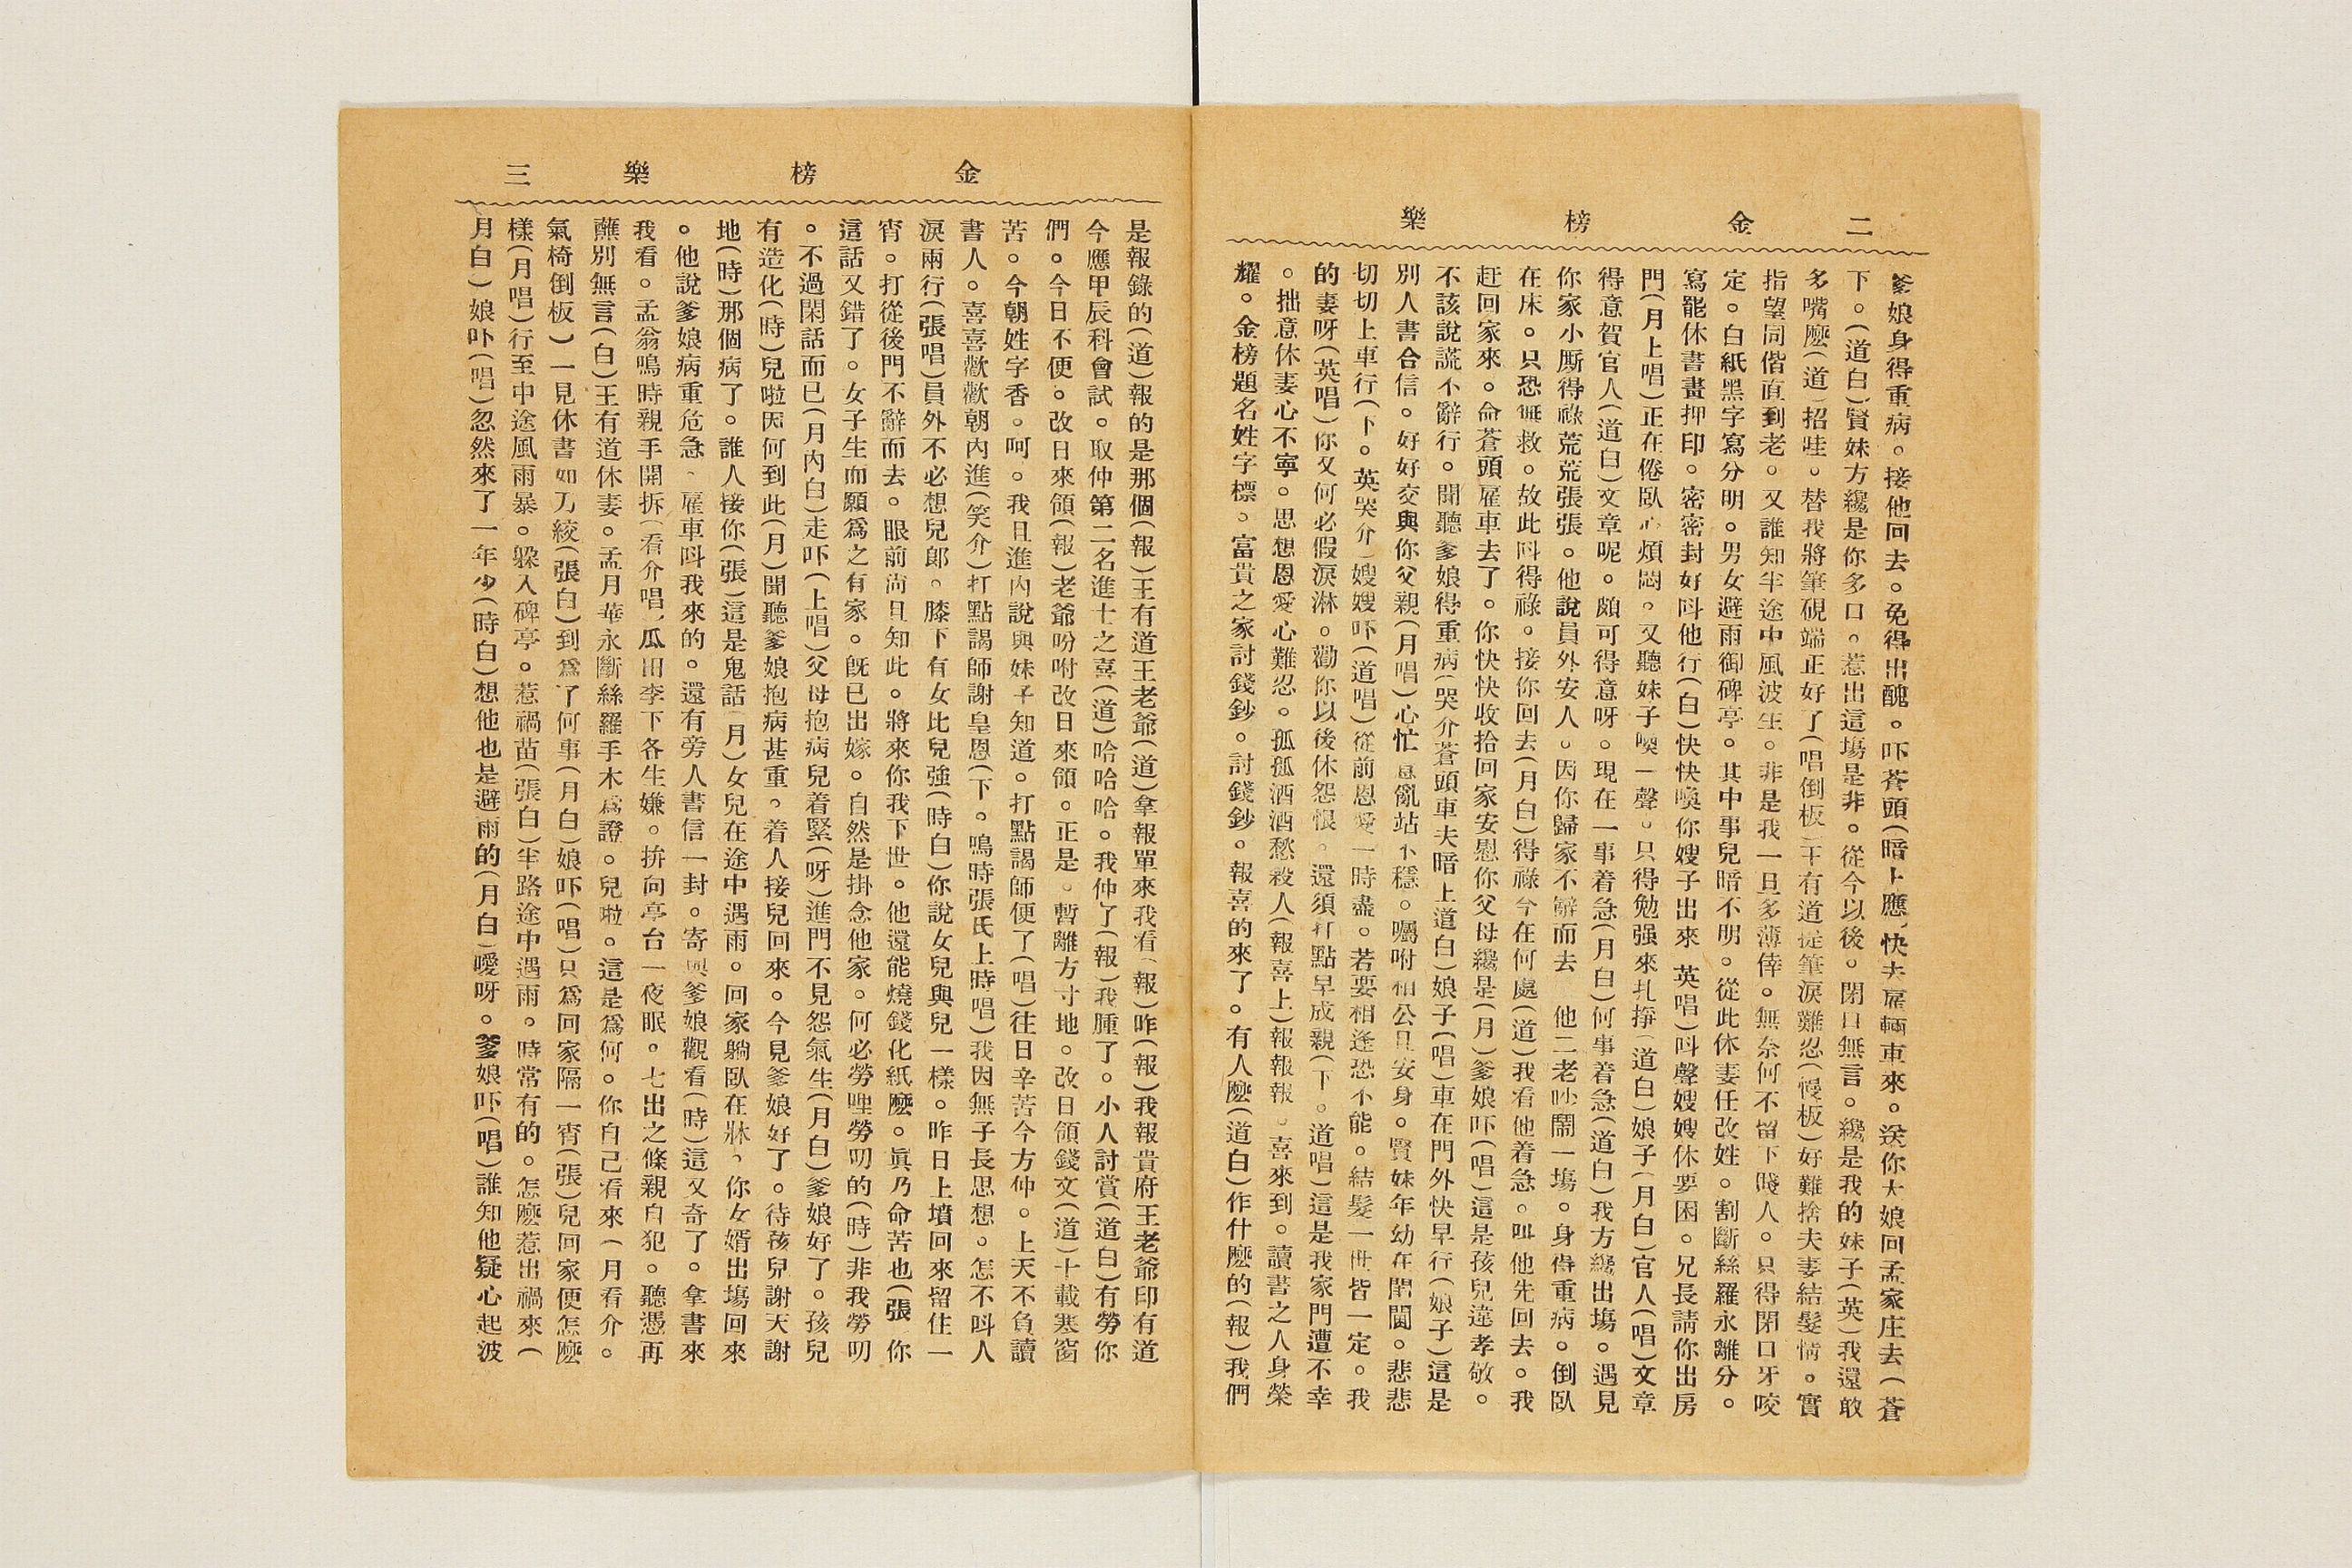 二　金　榜　樂
爹娘身得重病。接他回去。免得出醜。吓蒼頭(暗上應)快去雇輛車來。送你大娘回孟家庄去(蒼
下。(道白)賢妹方纔是你多口。惹出這塲是非。從今以後。閉口無言。纔是我的妹子(英)我還敢
多嘴麽(道)招哇。替我將筆硯端正好了(唱倒板)王有道提筆淚難忍(慢板)好難捨夫妻結髮情。實
指望同偕直到老。又誰知半途中風波生。非是我一旦多薄倖。無奈何不留下賤人。只得閉口牙咬
定。白紙黑字寫分明。男女避雨御碑亭。其中事兒暗不明。從此休妻任改姓。割斷絲羅永離分。
寫罷休書畫押印。密密封好呌他行(白)快快喚你嫂子出來　英唱)呌聲嫂嫂休要困。兄長請你出房
門(月上唱)正在倦臥心煩悶。又聽妹子喚一聲。只得勉强來扎掙(道白)娘子(月白)官人(唱)文章
得意賀官人(道白)文章呢。頗可得意呀。現在一事着急(月白)何事着急(道白)我方纔出塲。遇見
你家小厮得祿荒荒張張。他說員外安人。因你歸家不辭而去　他二老吵鬧一塲。身得重病。倒臥
在床。只恐無救。故此呌得祿。接你回去(月白)得祿今在何處(道)我看他着急。呌他先回去。我
赶回家來。命蒼頭雇車去了。你快快收拾回家安慰你父母纔是(月)爹娘吓(唱)這是孩兒違孝敬。
不該說謊不辭行。聞聽爹娘得重病(哭介蒼頭車夫暗上道白)娘子(唱)車在門外快早行(娘子)這是
別人書合信。好好交與你父親(月唱)心忙意亂站不穩。囑咐相公且安身。賢妹年幼在閨閫。悲悲
切切上車行(下。英哭介)嫂嫂吓(道唱)從前恩愛一時盡。若要相逢恐不能。結髮一世皆一定。我
的妻呀(英唱)你又何必假淚淋。勸你以後休怨恨。還須打點早成親(下。道唱)這是我家門遭不幸
。拙意休妻心不寧。思想恩愛心難忍。孤孤酒酒愁殺人(報喜上)報報報。喜來到。讀書之人身榮
耀。金榜題名姓字標。富貴之家討錢鈔。討錢鈔。報喜的來了。有人麽(道白)作什麽的(報)我們
金　榜　樂　三
是報錄的(道)報的是那個(報)王有道王老爺(道)拿報單來我看(報)咋(報)我報貴府王老爺印有道
今應甲辰科會試。取仲第二名進士之喜(道)哈哈哈。我仲了(報)我腫了。小人討賞(道白)有勞你
們。今日不便。改日來領(報)老爺吩咐改日來領。正是。暫離方寸地。改日領錢文(道)十載寒窗
苦。今朝姓字香。呵。我且進內說與妹子知道。打點謁師便了(唱)往日辛苦今方仲。上天不負讀
書人。喜喜歡歡朝內進(笑介)打點謁師謝皇恩(下。鳴時張氏上時唱)我因無子長思想。怎不呌人
淚兩行(張唱)員外不必想兒郞。膝下有女比兒強(時白)你說女兒與兒一樣。昨日上墳回來留住一
宵。打從後門不辭而去。眼前尚且知此。將來你我下世。他還能燒錢化紙麽。眞乃命苦也(張　你
這話又錯了。女子生而願爲之有家。旣已出嫁。自然是掛念他家。何必勞哩勞叨的(時)非我勞叨
。不過閑話而已(月內白)走吓(上唱)父母抱病兒着緊(呀)進門不見怨氣生(月白)爹娘好了。孩兒
有造化(時)兒啦因何到此(月)聞聽爹娘抱病甚重。着人接兒回來。今見爹娘好了。待孩兒謝天謝
地(時)那個病了。誰人接你(張)這是鬼話(月)女兒在途中遇雨。回家躺臥在牀、你女婿出塲回來
。他說爹娘病重危急、雇車呌我來的。還有旁人書信一封。寄與爹娘觀看(時)這又奇了。拿書來
我看。孟翁鳴時親手開拆(看介唱)瓜田李下各生嫌。拚向亭台一夜眠。七出之條親自犯。聽憑再
蘸別無言(白)王有道休妻。孟月華永斷絲羅手木爲證。兒啦。這是爲何。你自己看來(月看介。
氣椅倒板)一見休書如刀絞(張白)到爲了何事(月白)娘吓(唱)只爲回家隔一宵(張)兒回家便怎麽
樣(月唱)行至中途風雨暴。躱入碑亭。惹禍苗(張白)半路途中遇雨。時常有的。怎麽惹出禍來(
月白)娘吓(唱)忽然來了一年少(時白)想他也是避雨的(月白)嗳呀。爹娘吓(唱)誰知他疑心起波